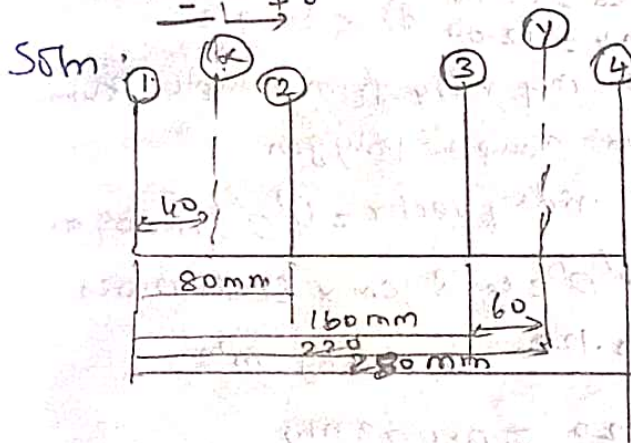 Soln.
① ⓧ ② ③ Ⓨ ④
40
80mm
160mm 60
220
280mm